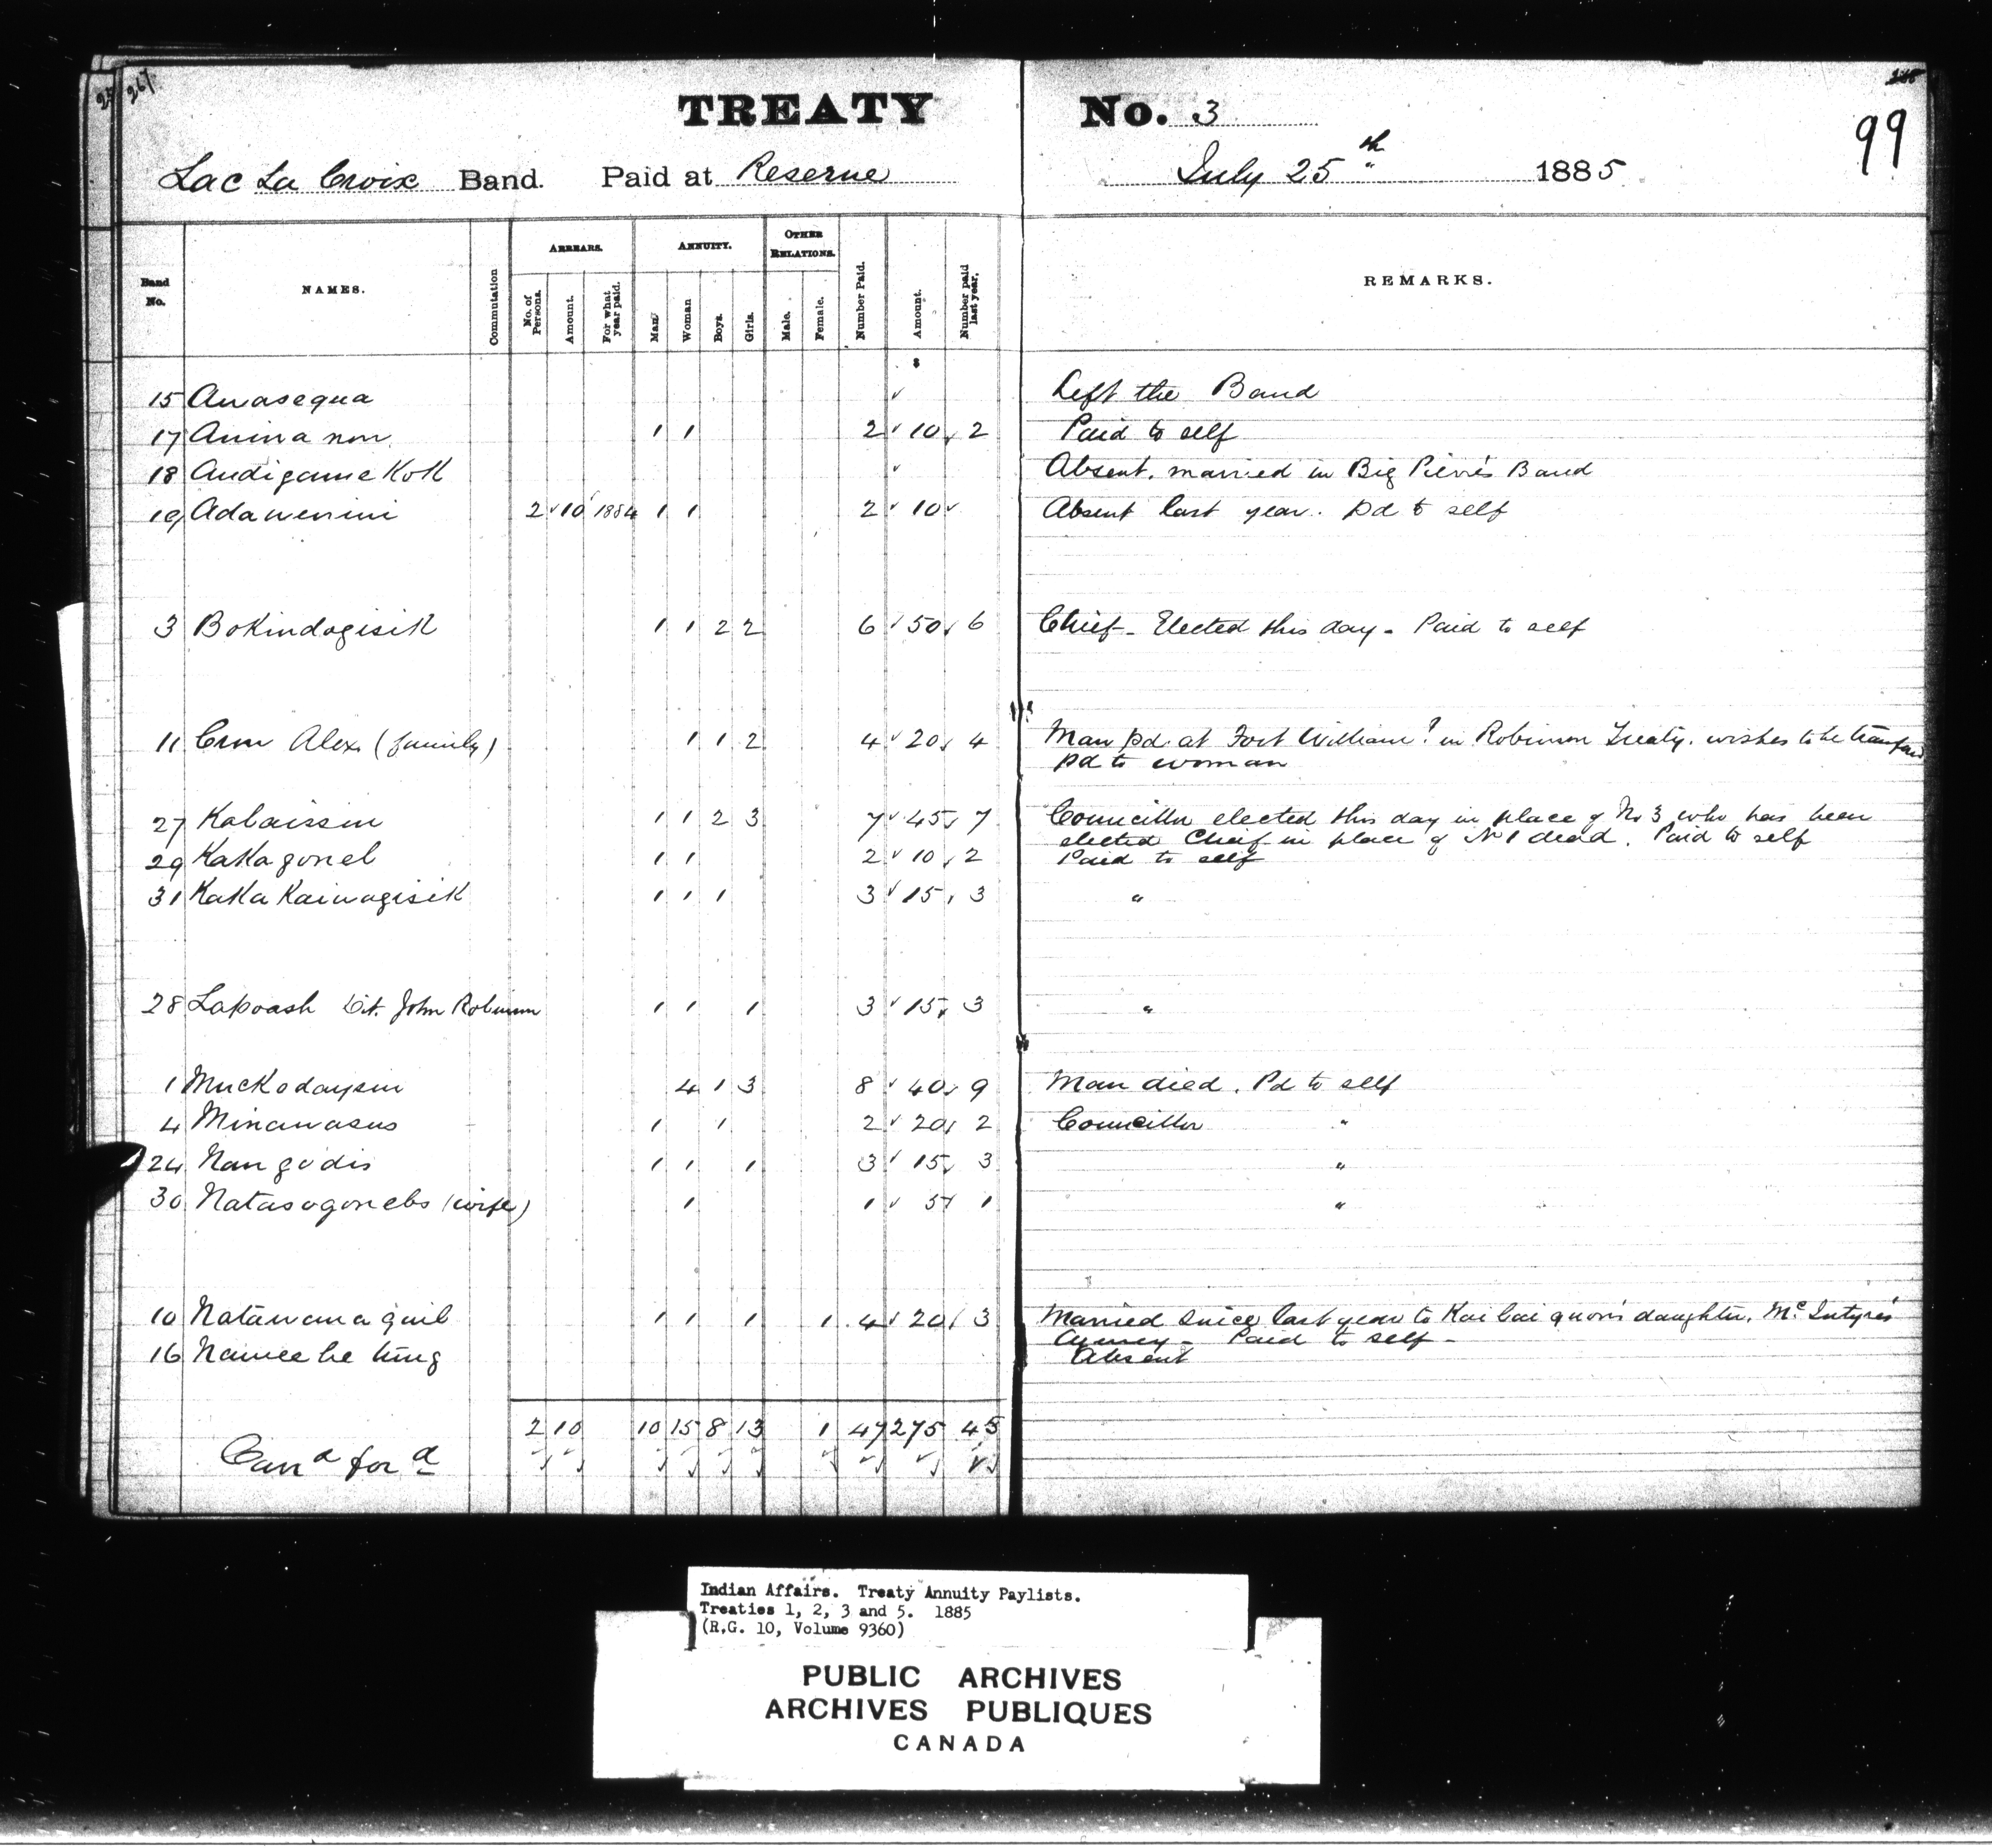 267
TREATY No. 3
99
Lac La Croix Band. Paid at Reserve July 25th 1885
Band No. NAMES. Commutation ARREARS. No. of Persons. Amount. For what year paid. ANNUITY. Man Woman Boys. Girls. OTHER RELATIONS. Male. Female. Number Paid. Amount. Number paid last year. REMARKS.
$
15 Awasequa ✓ Left the Band
17 Anina non 1 1 2 ✓ 10 ✓ 2 Paid to self
18 AndigameKok ✓ Absent. married in Big Pierre's Band
19 Adawenini 2 ✓ 10 1884 1 1 2 ✓ 10 ✓ Absent last year. pd to self
3 Bokindogisik 1 1 2 2 6 ✓ 50 ✓ 6 Chief - Elected this day - Paid to self
11 Crow Alex (family) 1 1 2 4 ✓ 20 ✓ 4 Man pd. at Fort William? in Robinson Treaty. wishes to be transferred
pd to woman
27 Kabaissin 1 1 2 3 7 ✓ 45 ✓ 7 Councillor elected this day in place of No 3 who has been
elected Chief in place of No 1 dead. Paid to self
29 Kakagoneb 1 1 2 ✓ 10 ✓ 2 Paid to self
31 KakaKaiwagisik 1 1 1 3 ✓ 15 ✓ 3 "
28 Lapoash Ct. John Robinson 1 1 1 3 ✓ 15 ✓ 3 "
1 Muckodaysin 4 1 3 8 ✓ 40 ✓ 9 Man died. Pd to self
4 Minawasus 1 1 2 ✓ 20 ✓ 2 Councillor "
24 Nangodis 1 1 1 3 ✓ 15 ✓ 3 "
30 Natasogonebs (wife) 1 1 ✓ 5 ✓ 1 "
10 Natawanaquib 1 1 1 1 4 ✓ 20 ✓ 3 Married since last year to Kaibaiquon's daughter. Mc Intyre's
Agency - Paid to self -
16 Nameebe king Absent
2 10 10 15 8 13 1 47 275 45
Carrd ford
Indian Affairs. Treaty Annuity Paylists.
Treaties 1, 2, 3 and 5. 1885
(R.G. 10, Volume 9360)
PUBLIC ARCHIVES
ARCHIVES PUBLIQUES
CANADA